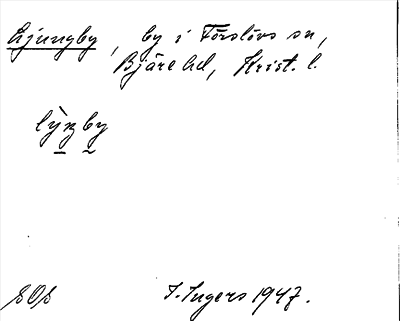 Ljungby, by i Förslövs sn,
Bjäre hd, Krist. l.
lỳŋby
SOS
I. Ingers 1947.